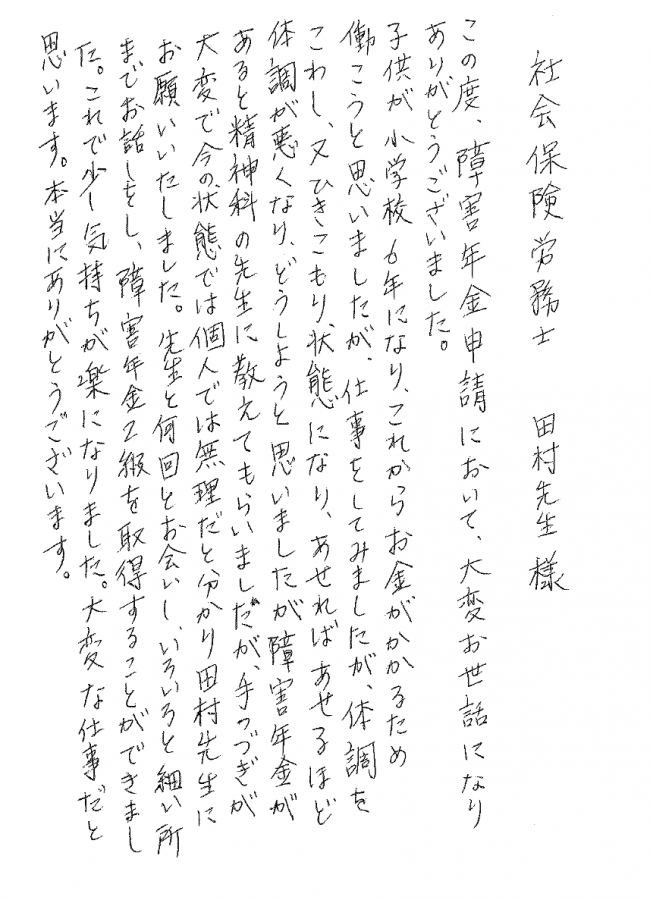 社会保険労務士　田村先生様
この度、障害年金申請において、大変お世話になり
ありがとうございました。
子供が小学校6年になり、これからお金がかかるため
働こうと思いましたが、仕事をしてみましたが、体調を
こわし、又ひきこもり状態になり、あせればあせるほど
体調が悪くなり、どうしようと思いましたが障害年金が
あると精神科の先生に教えてもらいましたが、手つづぎが
大変で今の状態では個人では無理だと分かり田村先生に
お願いいたしました。先生と何回とお会いし、いろいろと細い所
までお話しをし、障害年金2級を取得することができまし
た。これで少し気持ちが楽になりました。大変な仕事だと
思います。本当にありがとうございます。